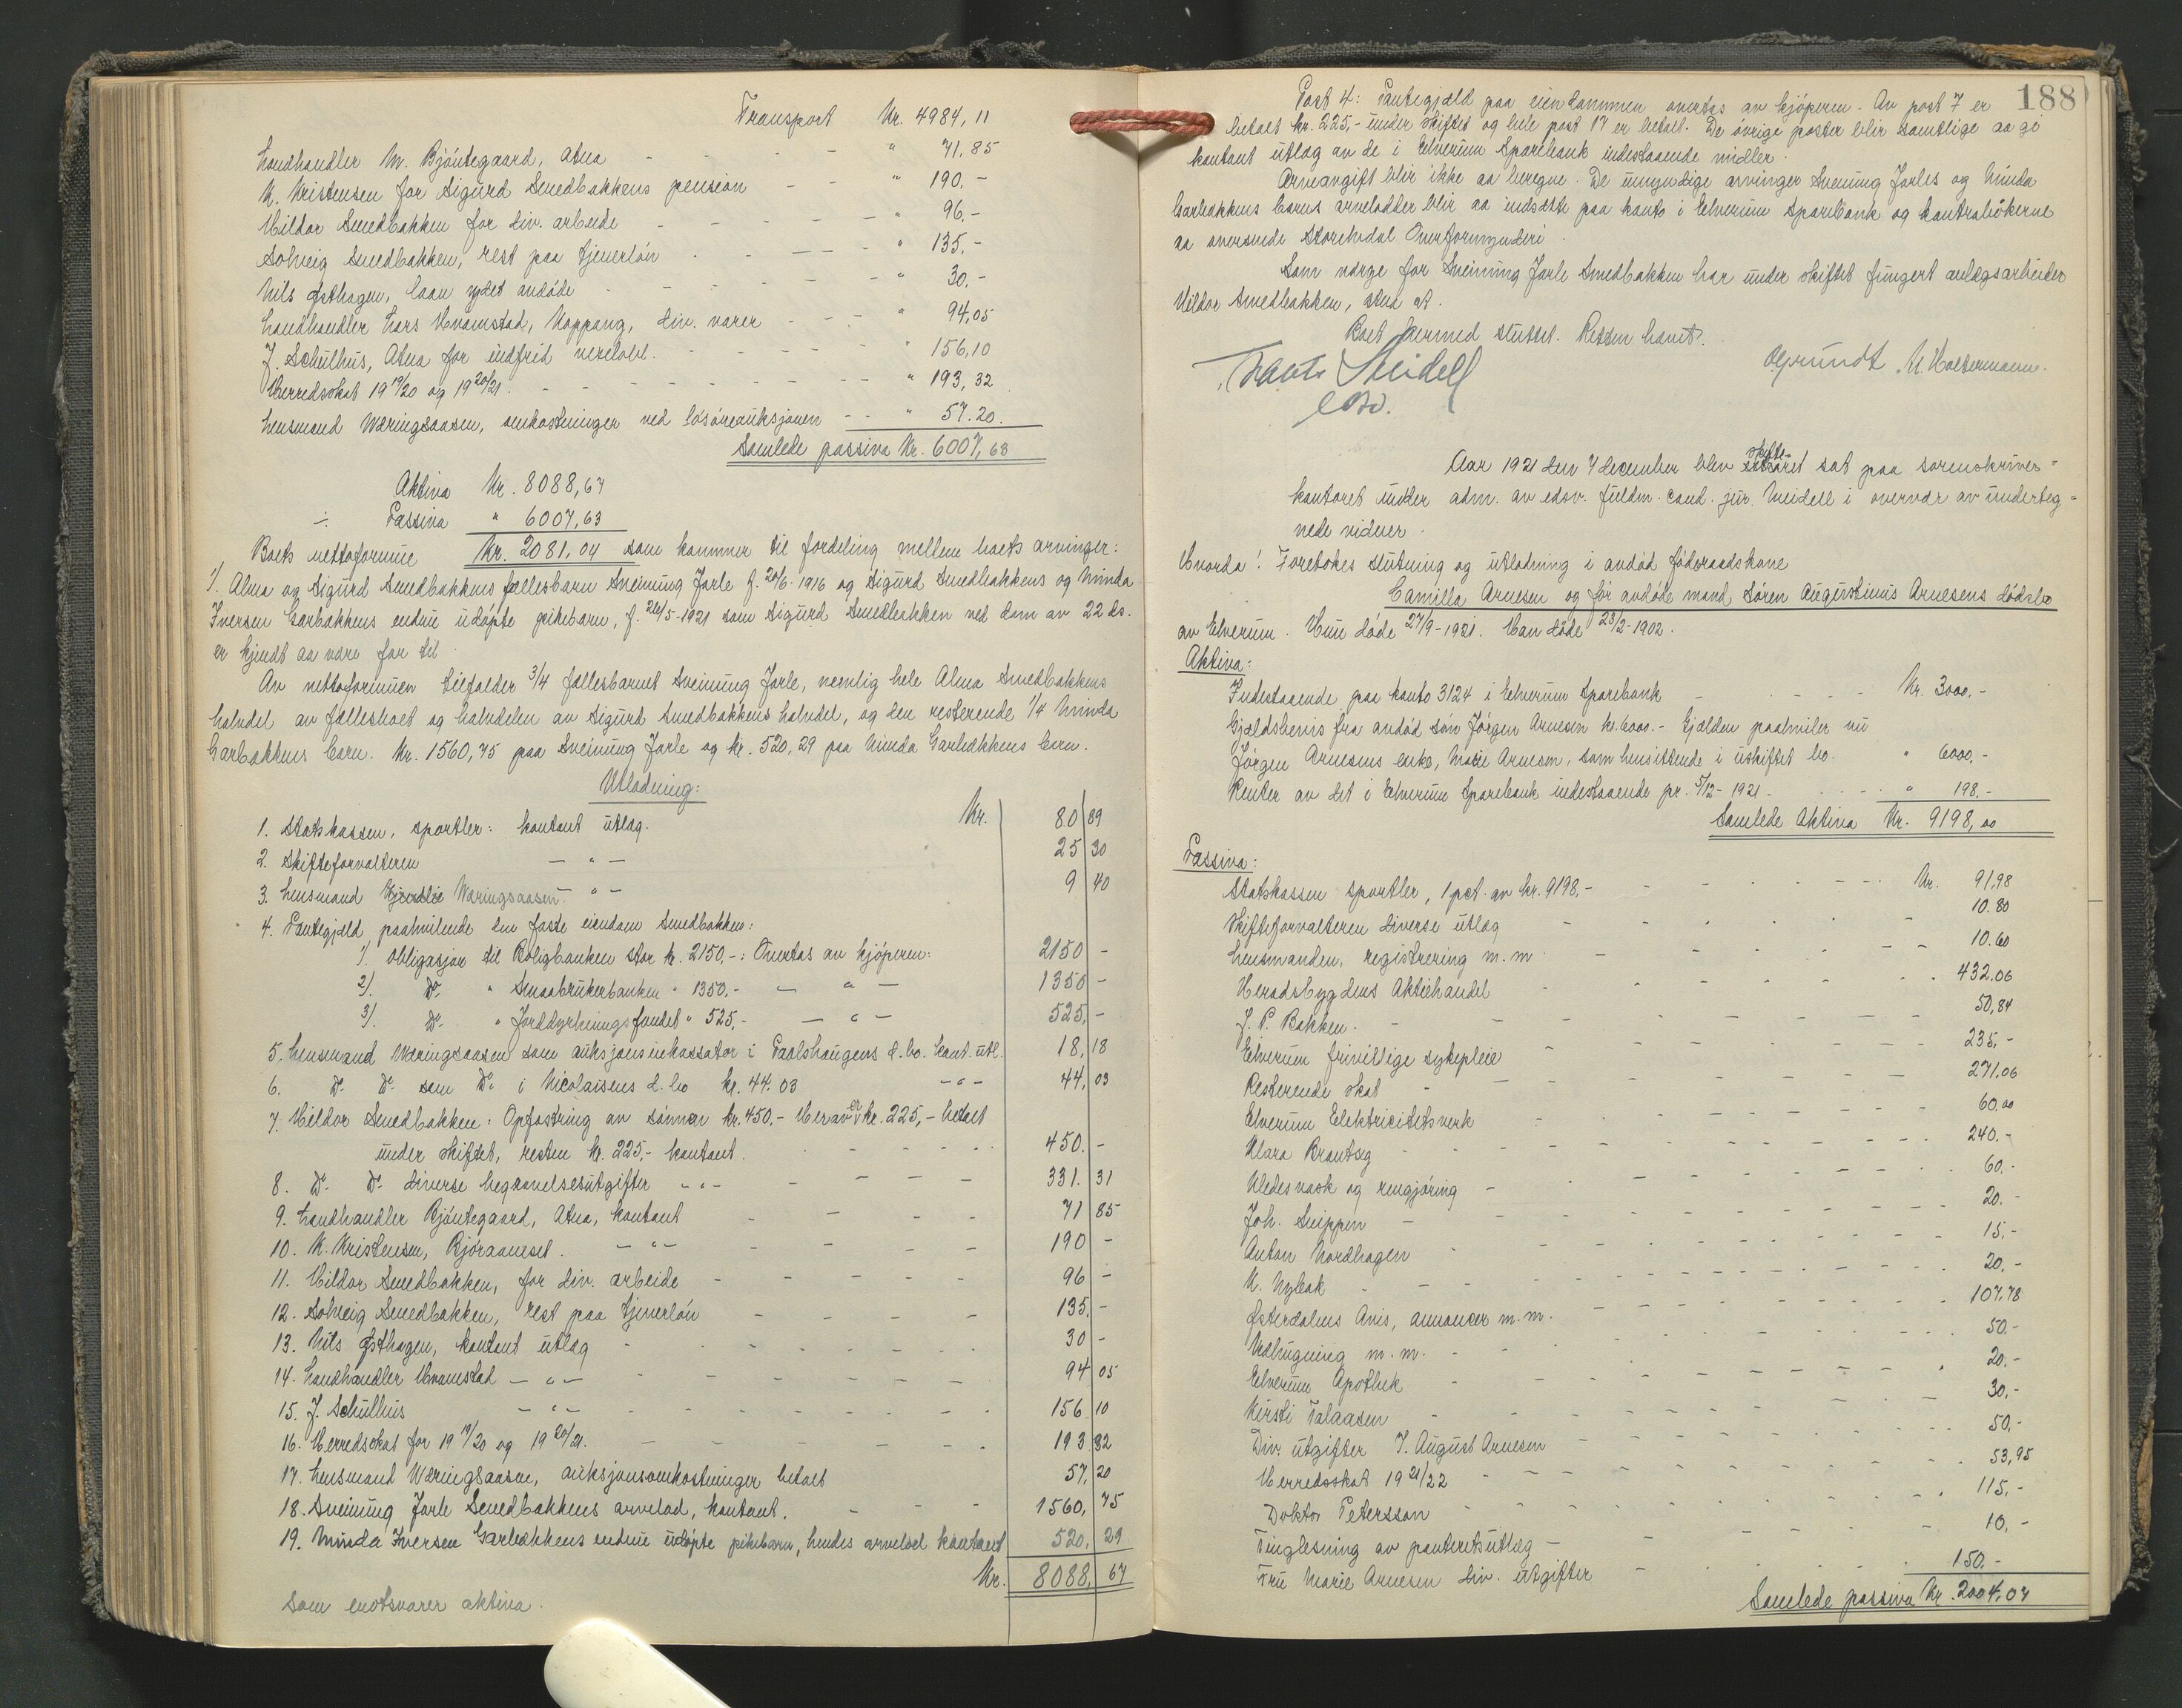 Transport Kr. 4984,11
Landhandler M. Bjöntegaard, Atna - - - - " 71.85
K. Kristensen for Sigurd Smedbakkens pension - - " 190.-
Hildor Smedbakken for div. arbeide - - - - " 96,-
Solveig Smedbakken, rest paa tjenerlön - - - - " 135.-
Nils Østhagen, laan ydet avdöde - - - - - " 30,-
Landhandler Lars Kvamstad, Koppang, div. varer - - - " 94,05
J. Schulhus, Atna for indfrid vexelobl. - - - - " 156,10
Herredsskat 19 19/20 og 19 20/21. - - - - - - - " 193,32
Lensmand Wæringsaasen, omkostninger ved lösöreauksjonen - - " 57.20.
Samlede passiva Kr. 6007,63
Aktiva Kr. 8088,67
÷ Passiva " 6007,63
Boets nettoformue Kr. 2081,04 som kommer til fordeling mellem boets arvinger:
1/. Alma og Sigurd Smedbakkens fellesbarn Sveinung Jarle f. 20/6-1916 og Sigurd Smedbakkens og Minda
Iversen Garbakkens endnu udöpte pikebarn, f. 26/5-1921 som Sigurd Smedbakken ved dom av 22 ds.
er kjendt aa være far til.
Av nettoformuen tilfalder 3/4 fællesbarnet Sveinung Jarle, nemlig hele Alma Smedbakkens
halvdel av fællesboet og halvdelen av Sigurd Smedbakkens halvdel, og den resterende 1/4 Minda
Garbakkens barn. Kr. 1560,75 paa Sveinung Jarle og kr. 520,29 paa Minda Garbakkens barn.
Utlodning:
1. Statskassen, sportler: kontant utlæg. Kr. 80 89
2. Skifteforvalteren - " - 25 30
3. Lensmand Wæringsaasen - " - 9 40
4. Pantegjæld paahvilende den faste eiendom Smedbakken:
1/. Obligasjon til Boligbanken stor kr. 2150,-: Overtas av kjöperen: 2150 -
2/. Do. " Smaabrukerbanken " 1350.- - " - 1350 -
3/. Do. " Jorddyrkningsfondet " 525,- - " - 525, -
5. Lensmand Wæringsaasen som auksjonsinkassator i Paalshaugens d.bo. kont. utl. 18, 18
6. Do. Do. som Do. i Nicolaisens d. bo kr. 44.03 - " - 44, 03
7. Hildor Smedbakken: Opfostring av sönnen kr. 450,- Herav er kr. 225,- betalt
under skiftet, resten kr. 225,- kontant. 450. -
8. Do. Do. diverse begravelsesutgifter - " - 331. 31
9. Landhandler Bjöntegaard, Atna, kontant 71 85
10. K. Kristensen, Björaaneset. - " - 190 -
11. Hildor Smedbakken, for div. arbeide 96 -
12. Solveig Smedbakken, rest paa tjenerlön 135. -
13. Nils Østhagen, kontant utlæg 30 -
14. Landhandler Kvamstad - " - 94 05
15. J. Schulhus - " - 156 10
16. Herredsskat for 19 19/20 og 19 20/21. 193 32
17. Lensmand Wæringsaasen, auksjonsomkostninger betalt 57, 20
18. Sveinung Jarle Smedbakkens arvelod, kontant. 1560, 75
19. Minda Iversen Garbakkens endnu udöpte pikebarn, hendes arvelod kontant 520, 29
Kr. 8088, 67
Som motsvarer aktiva.
188
Post 4: Pantegjæld paa eiendommen overtas av kjöperen. Av post 7 er
betalt kr. 225,- under skiftet og hele post 17 er betalt. De övrige poster blir samtlige aa gi
kontant utlæg av de i Elverum Sparebank indestaaende midler.
Arveavgift blir ikke aa beregne. De umyndige arvinger Sveinung Jarles og Minda
Garbakkens barns arvelodder blir aa indsætte paa konto i Elverum Sparebank og kontrabökerne
aa oversende Storelvdal Overformynderi.
Som værge for Sveinung Jarle Smedbakken har under skiftet fungert anlægsarbeider
Hildor Smedbakken, Atna st.
Boet hermed sluttet. Retten hævet.
Trauls Meidell
edsv.
O. Grundt M. Woltermann.
Aar 1921 den 7 december blev skifteret sat paa sorenskriver-
kontoret under adm. av edsv. fuldm. cand. jur. Meidell i overvær av underteg-
nede vidner.
Hvorda! Foretokes slutning og utlodning i avdöd föderaadskone
Camilla Arnesen og för avdöde mand Sören Augustinus Arnesens dödsbo
av Elverum. Hun döde 27/9-1921. Han döde 23/2-1902.
Aktiva:
Indestaaende paa konto 3124 i Elverum Sparebank - - - - - Kr. 3000.-
Gjældsbevis fra avdöd sön Jörgen Arnesen kr. 6000.- Gjælden paahviler nu
Jörgen Arnesens enke, Marie Arnesen, som hensittende i uskiftet bo. " 6000,-
Renter av det i Elverum Sparebank indestaaende pr. 5/12-1921 - - - - " 198.-
Samlede aktiva Kr. 9198,00
Passiva:
Statskassen sportler, 1 pct. av kr. 9198.- - - - - - Kr. 91,98
Skifteforvalteren diverse utlæg 10.80
Lensmanden, registrering m.m. 10.60
Heradsbygdens Aktiehandel 432.06
J. P. Bakken. 50,84
Elverum frivillige sykepleie 235,-
Resterende skat 271.06
Elverum Elektricitetsverk 60.00
Klara Brautseg 240.-
Klædesvask og rengjöring 60.-
Joh. Snippen 20.-
Anton Nordhagen 15,-
K. Nybak 20,-
Østerdalens Avis, annoncer m.m. 107.78
Vedhugning m.m. 50,-
Elverum Apothek 20,-
Kirsti Talaasen 30,-
Div. utgifter J. August Arnesen 50,-
Herredsskat 19 21/22 53,95
Doktor Petersson 115,-
Tinglesning av panteretsutlæg 10,-
Fru Marie Arnesen div. utgifter 150.-
Samlede passiva Kr. 2004,07